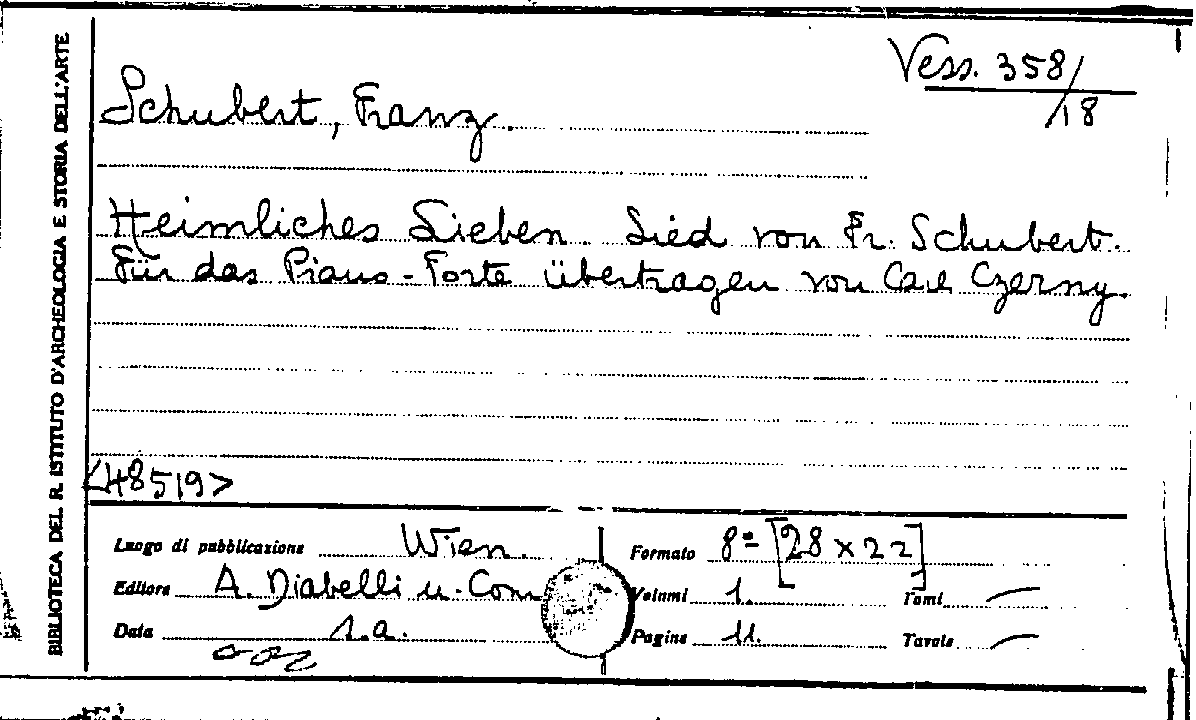 BIBLIOTECA DEL R. ISTITUTO D'ARCHEOLOGIA E STORIA DELL'ARTE
Vess. 358/18
Schubert, Franz.
Heimliches Lieben. Lied von Fr. Schubert.
Für das Piano-Forte übertragen von Carl Czerny.
<48519>
Luogo di pubblicazione Wien.
Formato 8º [28 x 22]
Editore A. Diabelli u. Com
Volumi 1.
Tomi —
Data s.a.
Pagine 11.
Tavole —